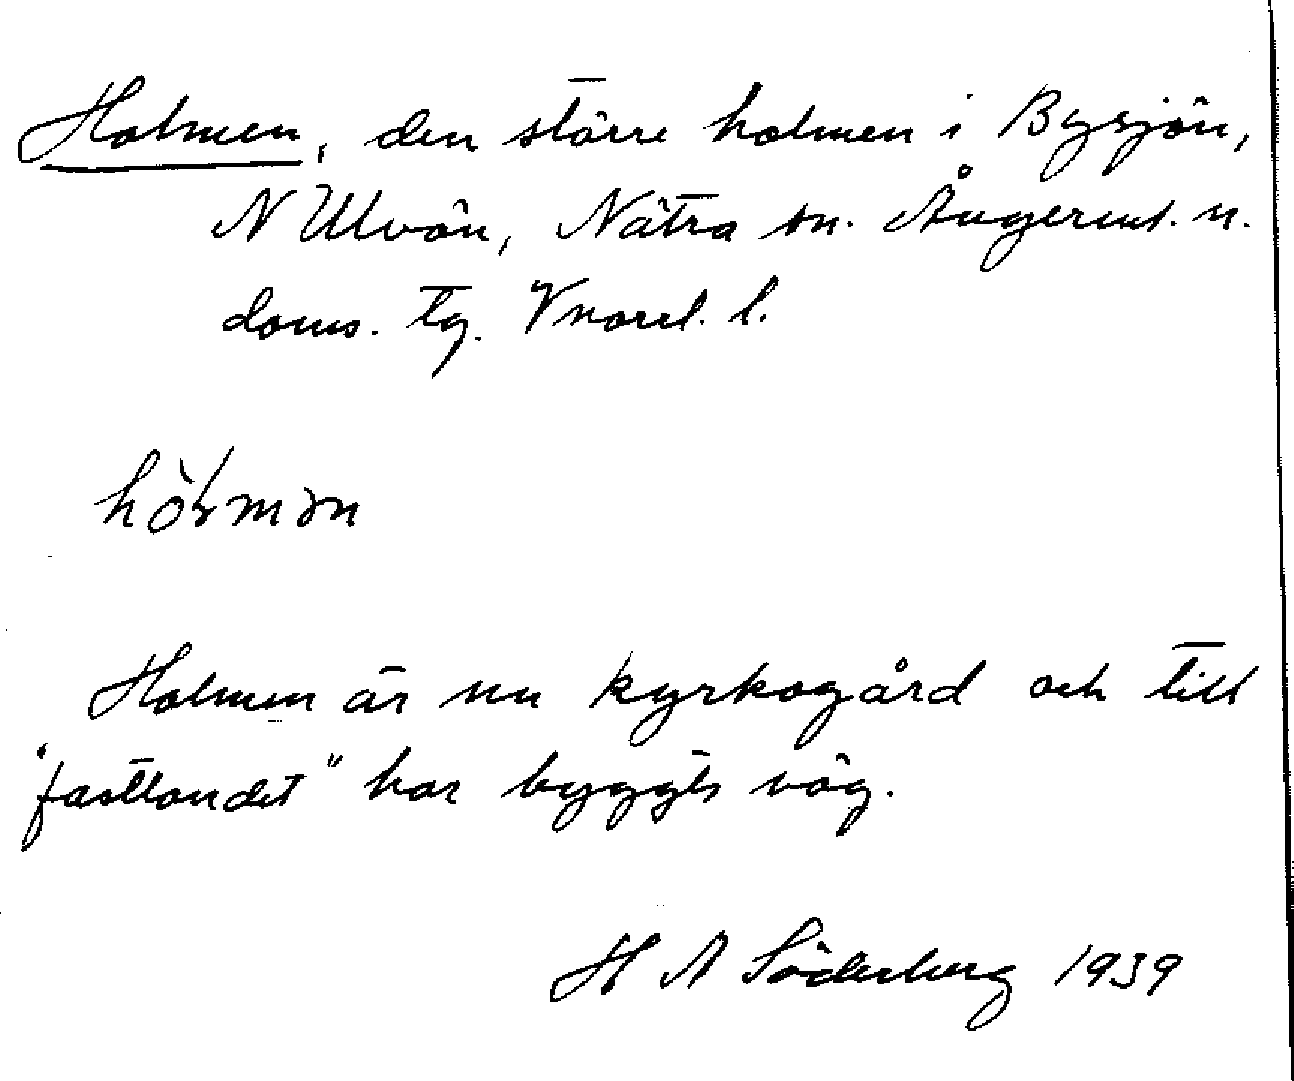 Holmen, den större holmen i Bysjön,
N Ulvön, Nätra sn. Ångerml. n.
doms. tg. Vnorrl. l.
Holmen är nu kyrkogård och till
"fastlandet" har byggts väg.
H A Söderberg 1939